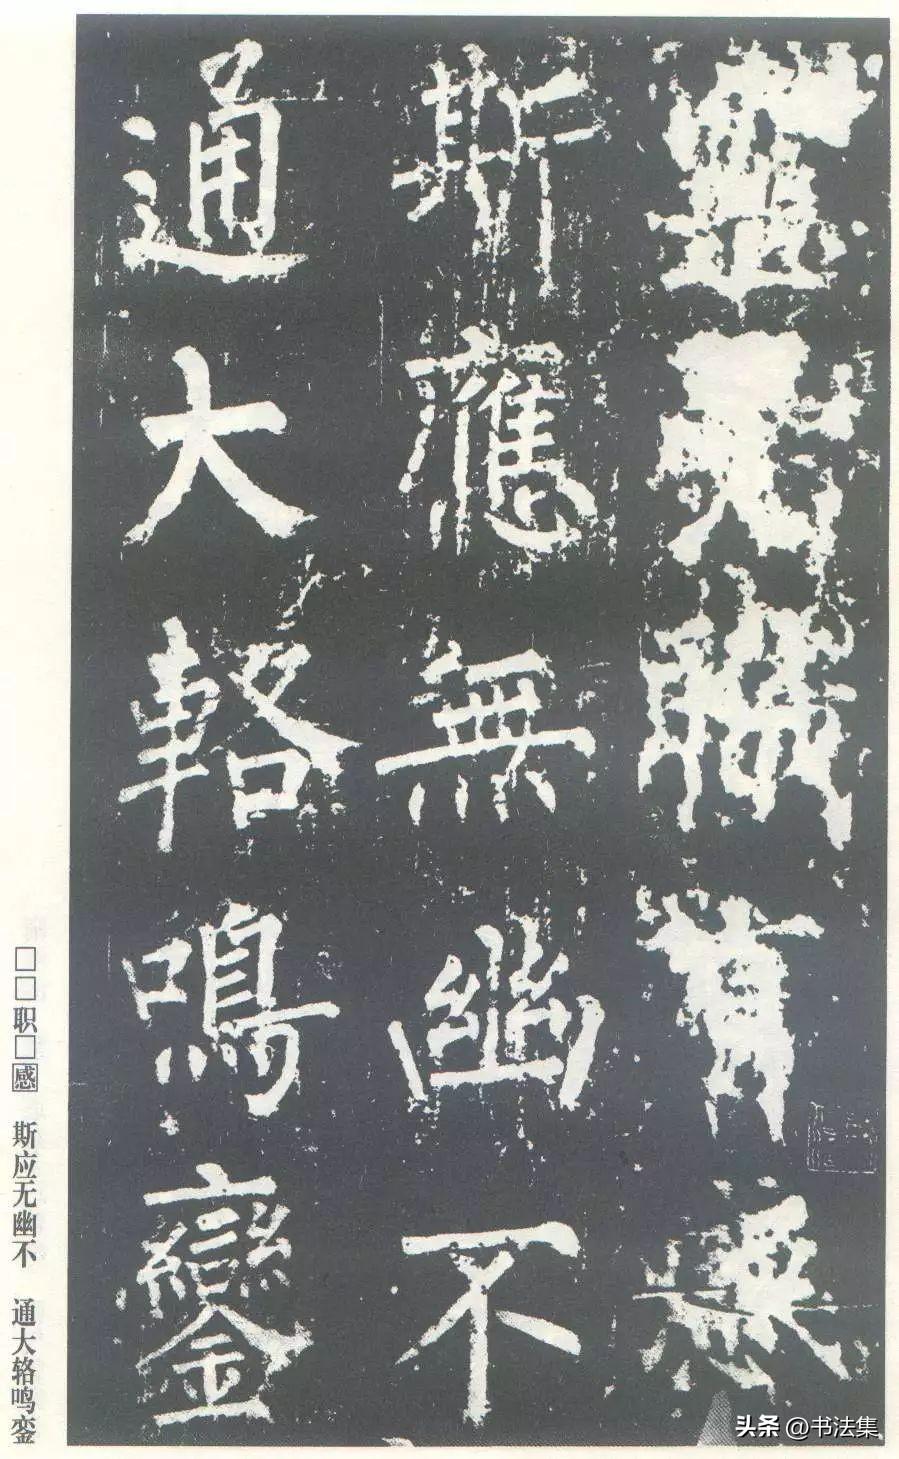 職
斯應無幽不
通大輅鳴鑾
□□职□感 斯应无幽不 通大辂鸣銮
头条 @书法集